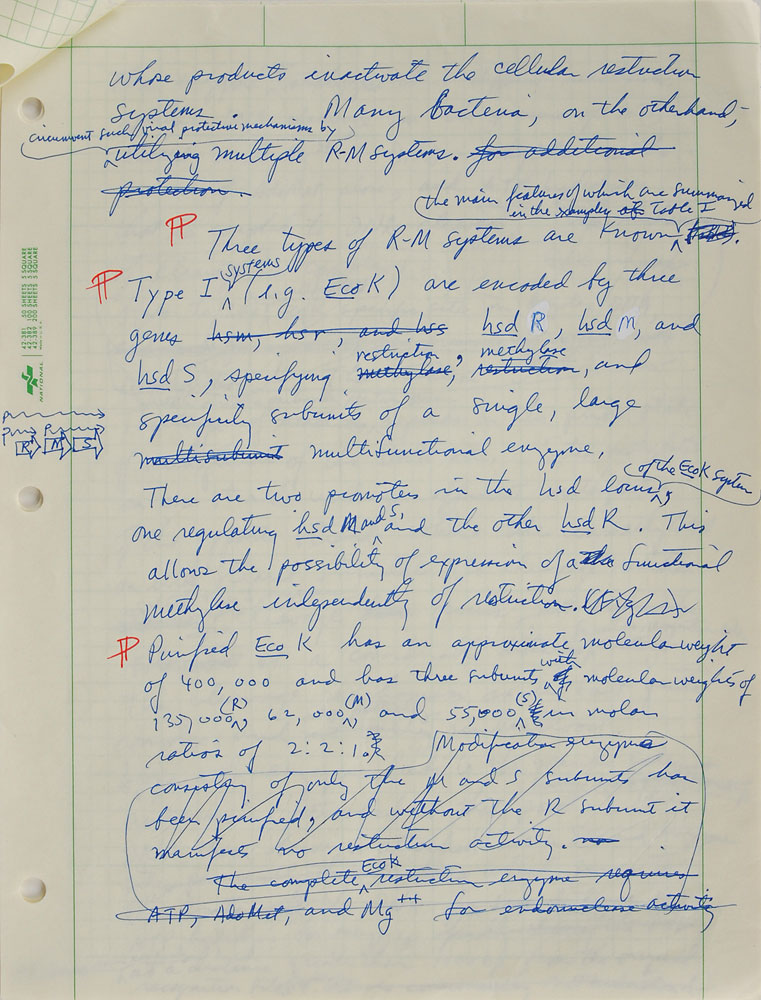 whose products inactivate the cellular restriction
systems. Many bacteria, on the otherhand,
circumvent such viral protective mechanisms by
utilizing multiple R-M systems. for additional
protection.
the main features of which are summarized
in the Table I
Three types of R-M systems are known
systems
Type I (e.g. EcoK) are encoded by three
genes hsm, hsr, and hss hsd R, hsd M, and
restriction, methylase
hsd S, specifying methylase, restriction, and
specificity subunits of a single, large
multisubunit multifunctional enzyme,
of the EcoK system
There are two promoters in the hsd locus,
and S,
one regulating hsd M and the other hsd R. This
allows the possibility of expression of a the functional
methylase independently of restriction.
Purified Eco K has an approximate molecular weight
with
of 400,000 and has three subunits molecular weights of
(R) (M) (S)
135,000, 62,000, and 55,000 in molar
ratios of 2:2:1. Modification enzyme
consisting of only the M and S subunits has
been purified, and without the R subunit it
manifests no restriction activity. no
EcoK
The complete restriction enzyme requires
ATP, AdoMet, and Mg++ for endonuclease activity
R M S
42-381 50 SHEETS 5 SQUARE
42-382 100 SHEETS 5 SQUARE
42-389 200 SHEETS 5 SQUARE
NATIONAL